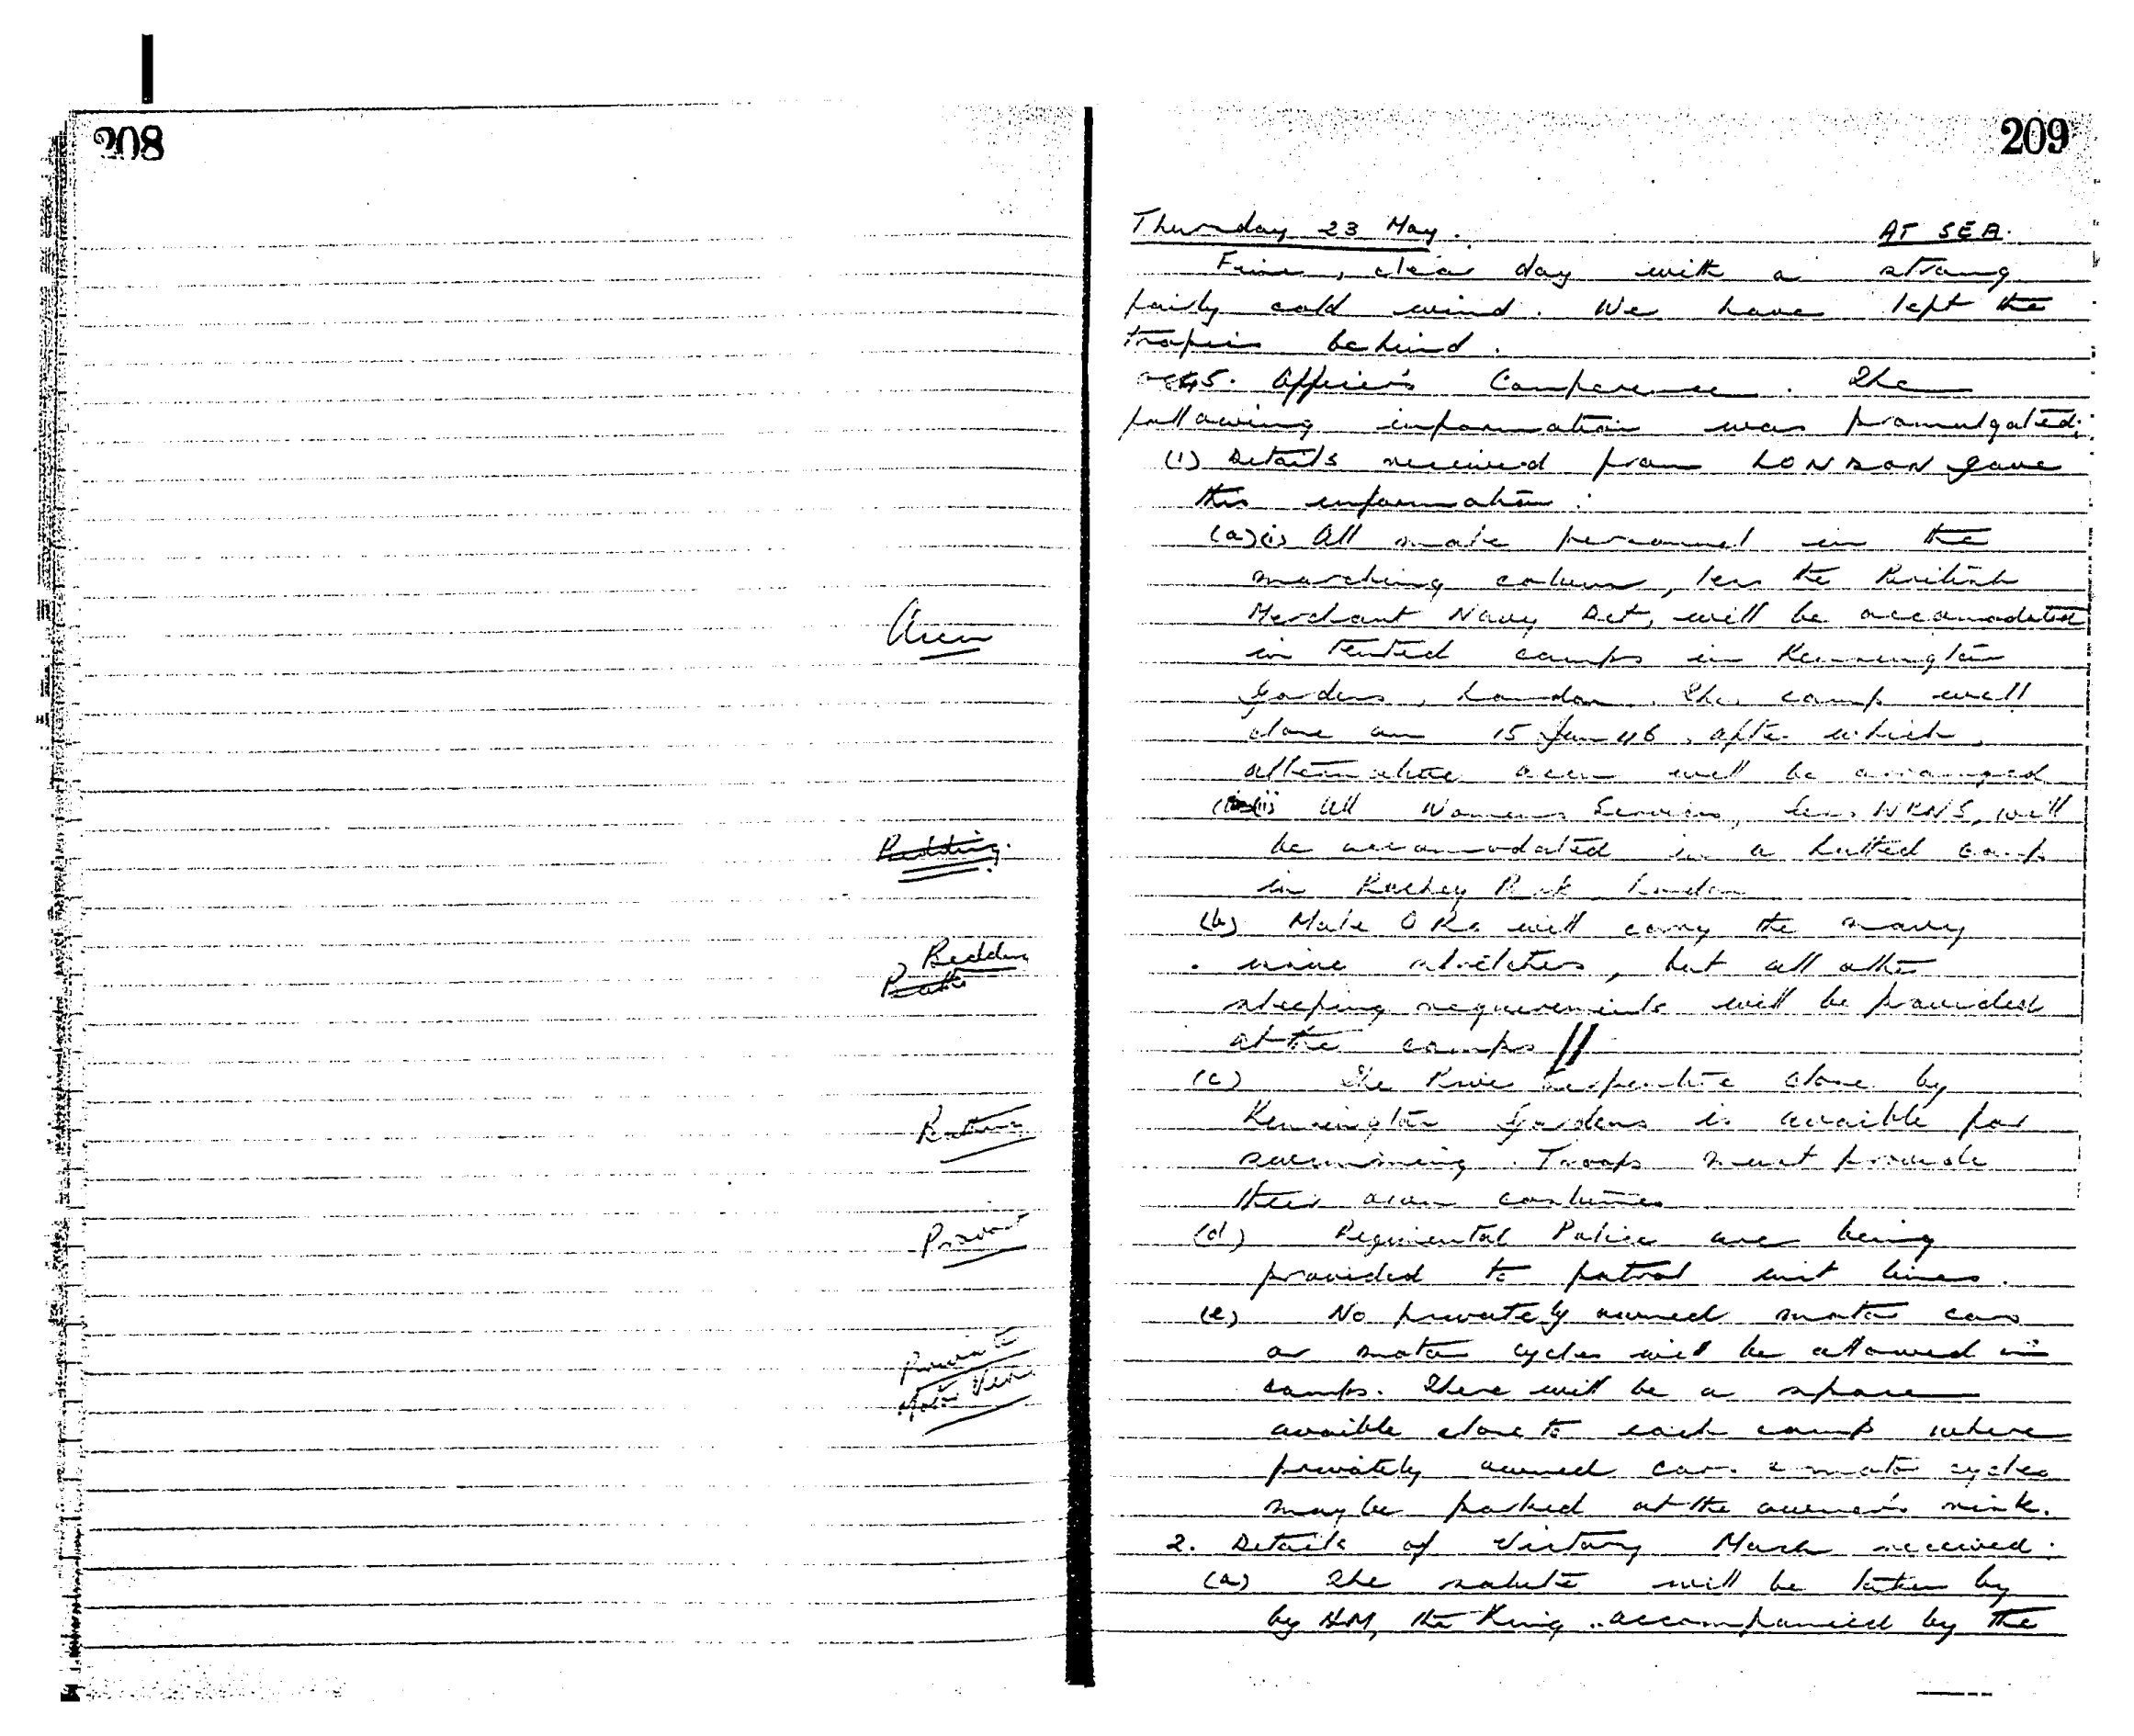 208
Accn
Bedding.
Bedding
Bathing
Provost
Private
Motor Veh.
209
Thursday 23 May. AT SEA.
Fine, clear day with a strong
fairly cold wind. We have left the
tropics behind.
Officer's Conference. The
following information was promulgated:
(1) Details received from LONDON gave
this information:
(a)(i) All male personnel in the
marching column, less the British
Merchant Navy Det, will be accomodated
in tented camps in Kensington
Gardens, London. The camp will
close on 15 Jun 46, after which,
alternative accn will be arranged
(ii) All Womens Services, less WRNS, will
be accommodated in a hutted camp
in Park London
(b) Male ORs will carry the navy
stretchers, but all other
sleeping requirements will be provided
at the camps //
(c) The River Serpentine close by
Kensington Gardens is availble for
swimming. Troops must provide
their own costumes
(d) Regimental Police are being
provided to patrol unit lines.
(e) No privately owned motor cars
or motor cycles will be allowed in
camps. There will be a space
availble close to each camp where
privately owned cars & motor cycles
may be parked at the owner's risk.
2. Details of Victory March received.
(a) The salute will be taken by
by HM, the King accompanied by the